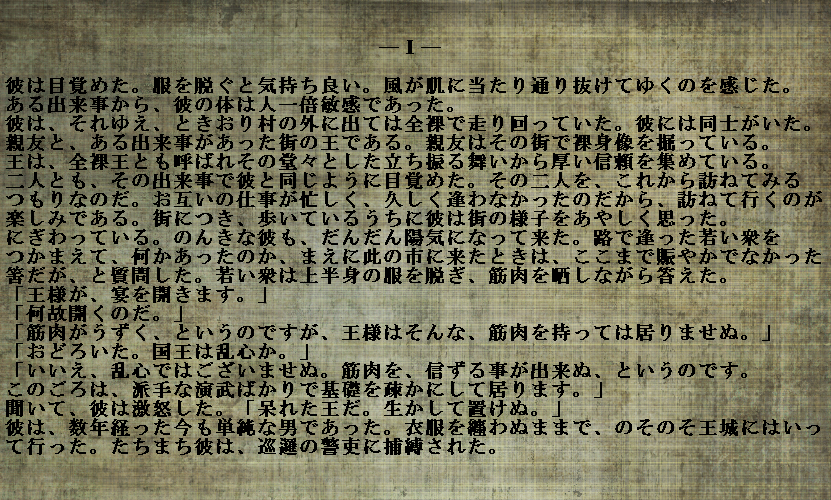 ― I ―
彼は目覚めた。服を脱ぐと気持ち良い。風が肌に当たり通り抜けてゆくのを感じた。
ある出来事から、彼の体は人一倍敏感であった。
彼は、それゆえ、ときおり村の外に出ては全裸で走り回っていた。彼には同士がいた。
親友と、ある出来事があった街の王である。親友はその街で裸身像を掘っている。
王は、全裸王とも呼ばれその堂々とした立ち振る舞いから厚い信頼を集めている。
二人とも、その出来事で彼と同じように目覚めた。その二人を、これから訪ねてみる
つもりなのだ。お互いの仕事が忙しく、久しく逢わなかったのだから、訪ねて行くのが
楽しみである。街につき、歩いているうちに彼は街の様子をあやしく思った。
にぎわっている。のんきな彼も、だんだん陽気になって来た。路で逢った若い衆を
つかまえて、何かあったのか、まえに此の市に来たときは、ここまで賑やかでなかった
筈だが、と質問した。若い衆は上半身の服を脱ぎ、筋肉を晒しながら答えた。
「王様が、宴を開きます。」
「何故開くのだ。」
「筋肉がうずく、というのですが、王様はそんな、筋肉を持っては居りませぬ。」
「おどろいた。国王は乱心か。」
「いいえ、乱心ではございませぬ。筋肉を、信ずる事が出来ぬ、というのです。
このごろは、派手な演武ばかりで基礎を疎かにして居ります。」
聞いて、彼は激怒した。「呆れた王だ。生かして置けぬ。」
彼は、数年経った今も単純な男であった。衣服を纏わぬままで、のそのそ王城にはいっ
て行った。たちまち彼は、巡邏の警吏に捕縛された。